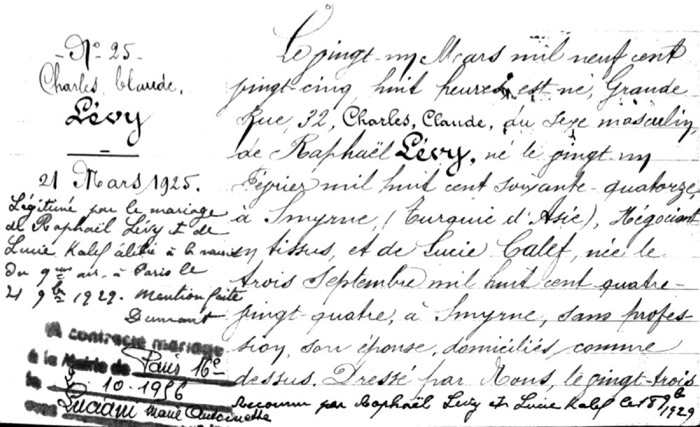 N° 25
Charles Claude,
Lévy
21 Mars 1925.
Légitimé par le mariage
de Raphaël Lévy et de
Lucie Kalef célébré à la mairie
du 9me arr. à Paris le
21 9bre 1929. Mention faite
Dumont
A contracté mariage
à la Mairie de Paris 16e
le 10-1956
avec Luciani Marie Antoinette
Le vingt-un Mars mil neuf cent
vingt-cinq, huit heures, est né, Grande
Rue, 32, Charles, Claude, du sexe masculin,
de Raphaël Lévy, né le vingt un
Février mil huit cent soixante-quatorze,
à Smyrne, (Turquie d'Asie), Négociant
en tissus, et de Lucie Calef, née le
trois Septembre mil huit cent quatre-
vingt quatre, à Smyrne, sans profes-
sion, son épouse, domiciliés comme
dessus. Dressé par Nous, le vingt-trois
Reconnu par Raphaël Lévy et Lucie Kalef le 18 9bre 1929